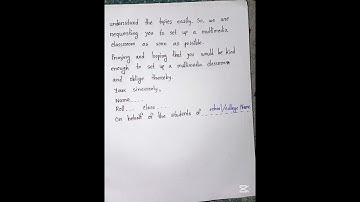 understand the topics easily. So, we are
requesting you to set up a multimedia
classroom as soon as possible.
Praying and hoping that you would be kind
enough to set up a multimedia classroom
and oblige thereby.
Your sincerely,
Name....
Roll... class...
On behalf of the students of school/college Name